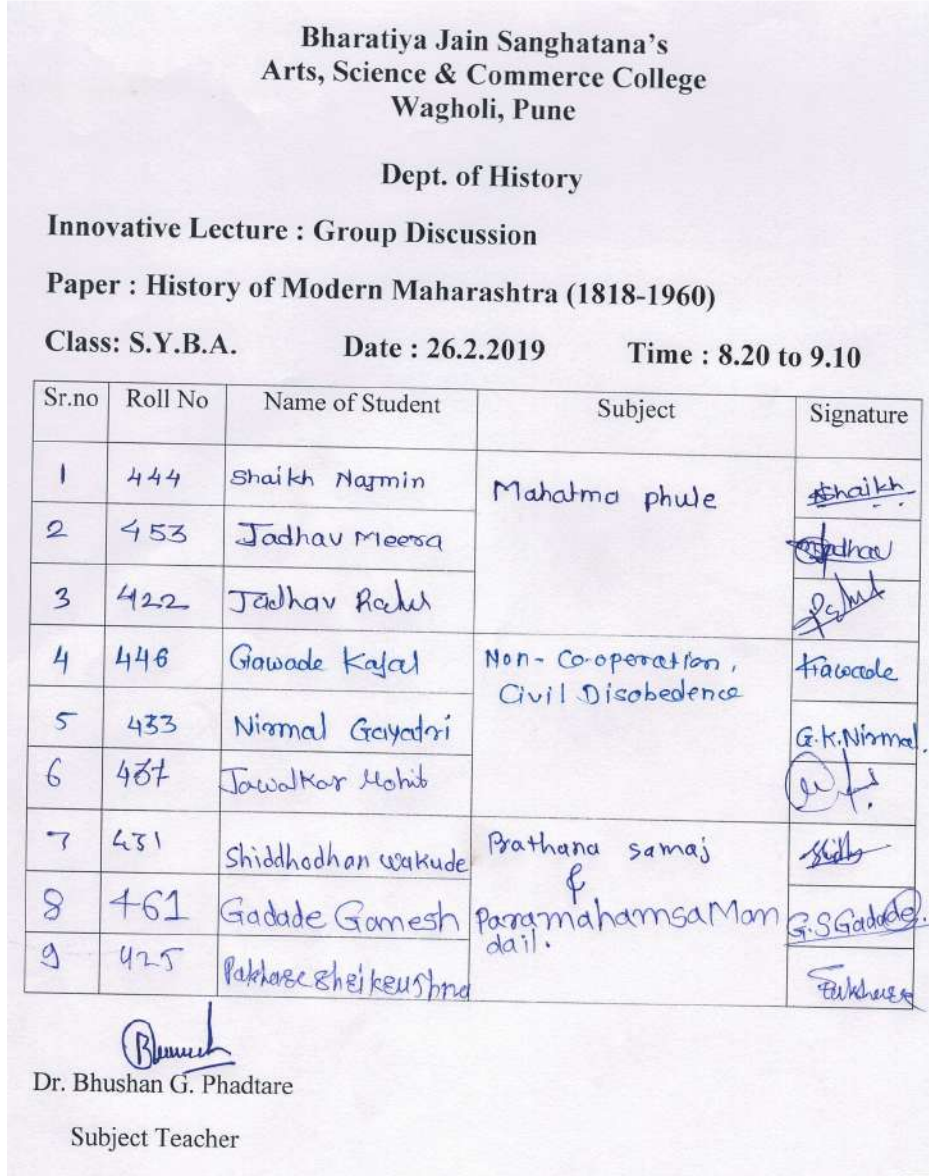 Bharatiya Jain Sanghatana's
Arts, Science & Commerce College
Wagholi, Pune
Dept. of History
Innovative Lecture : Group Discussion
Paper : History of Modern Maharashtra (1818-1960)
Class: S.Y.B.A. Date : 26.2.2019 Time : 8.20 to 9.10
Sr.no Roll No Name of Student Subject Signature
1 444 Shaikh Najmin Mahatma phule Shaikh
2 453 Jadhav Meera Jadhav
3 422 Jadhav
4 446 Gawade Kajal Non-Co-operation, Gawade
Civil Disobedence
5 433 Nirmal Gayatri G.K.Nirmal.
6 Jawalkar Mohit
7 431 Shiddhodhan wakude Prathana samaj
&
8 461 Gadade Ganesh Paramahamsa Man G.S Gadade.
dail.
9 425
Dr. Bhushan G. Phadtare
Subject Teacher